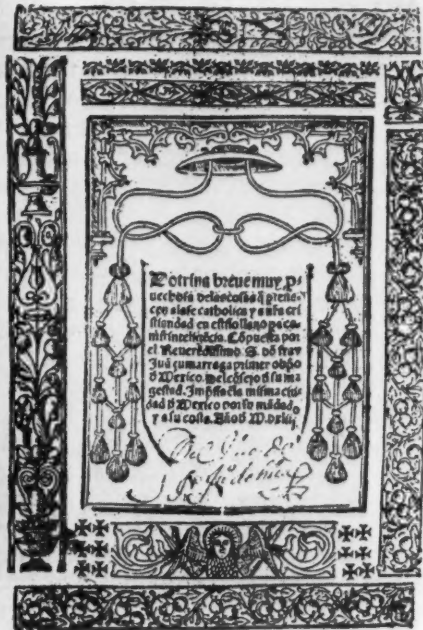 Dotrina breue muy p̄
uechosa delas cosas q̄ ꝑtene-
cen ala fe catholica y a n̄ra cri
stiandad en estilo llano pa co
mū intelligēcia. Cōpuesta por
el Reuerēdissimo. S. dō fray
Juā çumarraga primer obp̄o
d̄ Mexico. Del cōsejo d̄ su ma
gestad. Impssa ēla misma ciu
dad d̄ Mexico por su mādado
y a su costa. Año d̄ M.dxliij